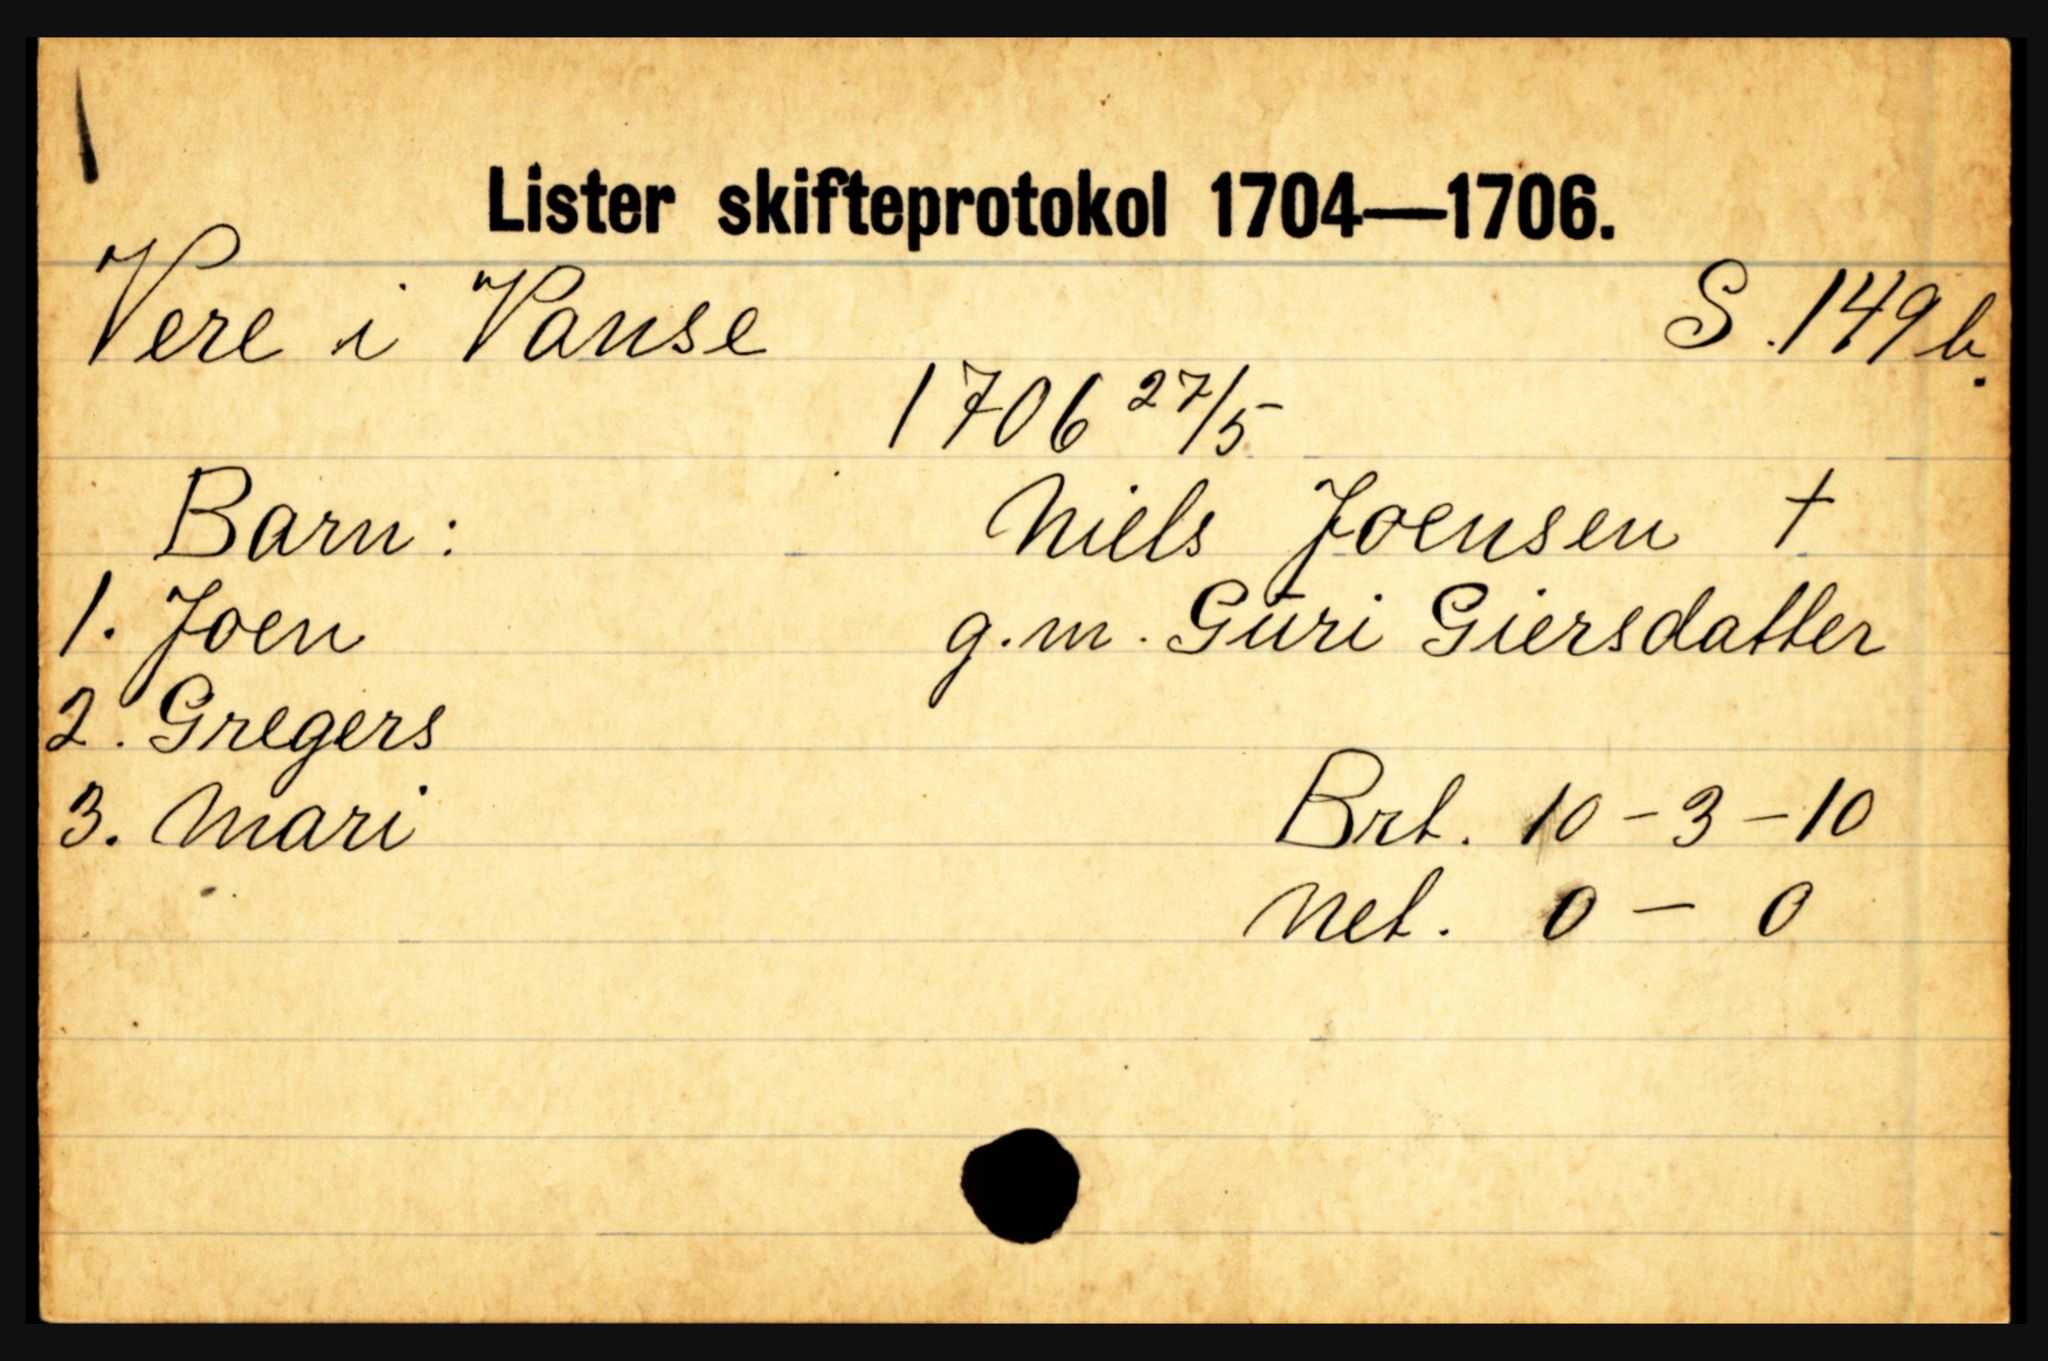 Lister skifteprotokol 1704—1706.
Vere i Vanse S. 149 b.
1706 27/5
Barn: Niels Joensen †
1. Joen g.m. Guri Giersdatter
2. Gregers
3. Mari Brt. 10 - 3 - 10
Net. 0 - 0